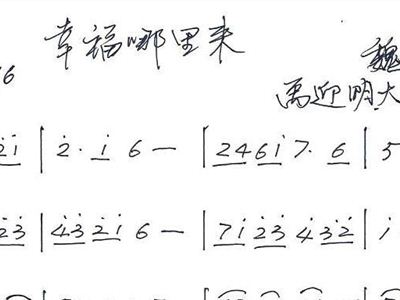 幸福哪里来
魏
禹迎明大
21 | 2· 1 6 — | 2461 7· 6 | 5
23 | 43 21 6 — | 71 23 432 | 1